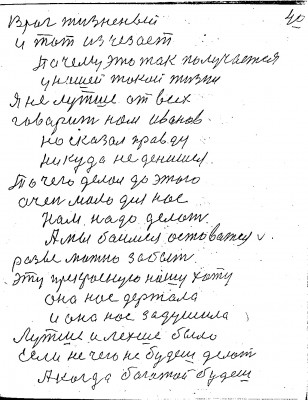 40
Враг жизненый
и тот изчезает
Почему это так получается
у нашей такой жизни
Я не лутше от всех
говарит нам иванов
но сказал правду
никуда не денишся
То чего делол до этого
очен мало для нас
Нам надо делат
А мы боимся оставатся
разве можно забыт
Эту прекрасную нашу хату
она нас держала
и она нас задушила
Лутше и лехше было
Если не чего не будеш делат
А когда багатой будеш